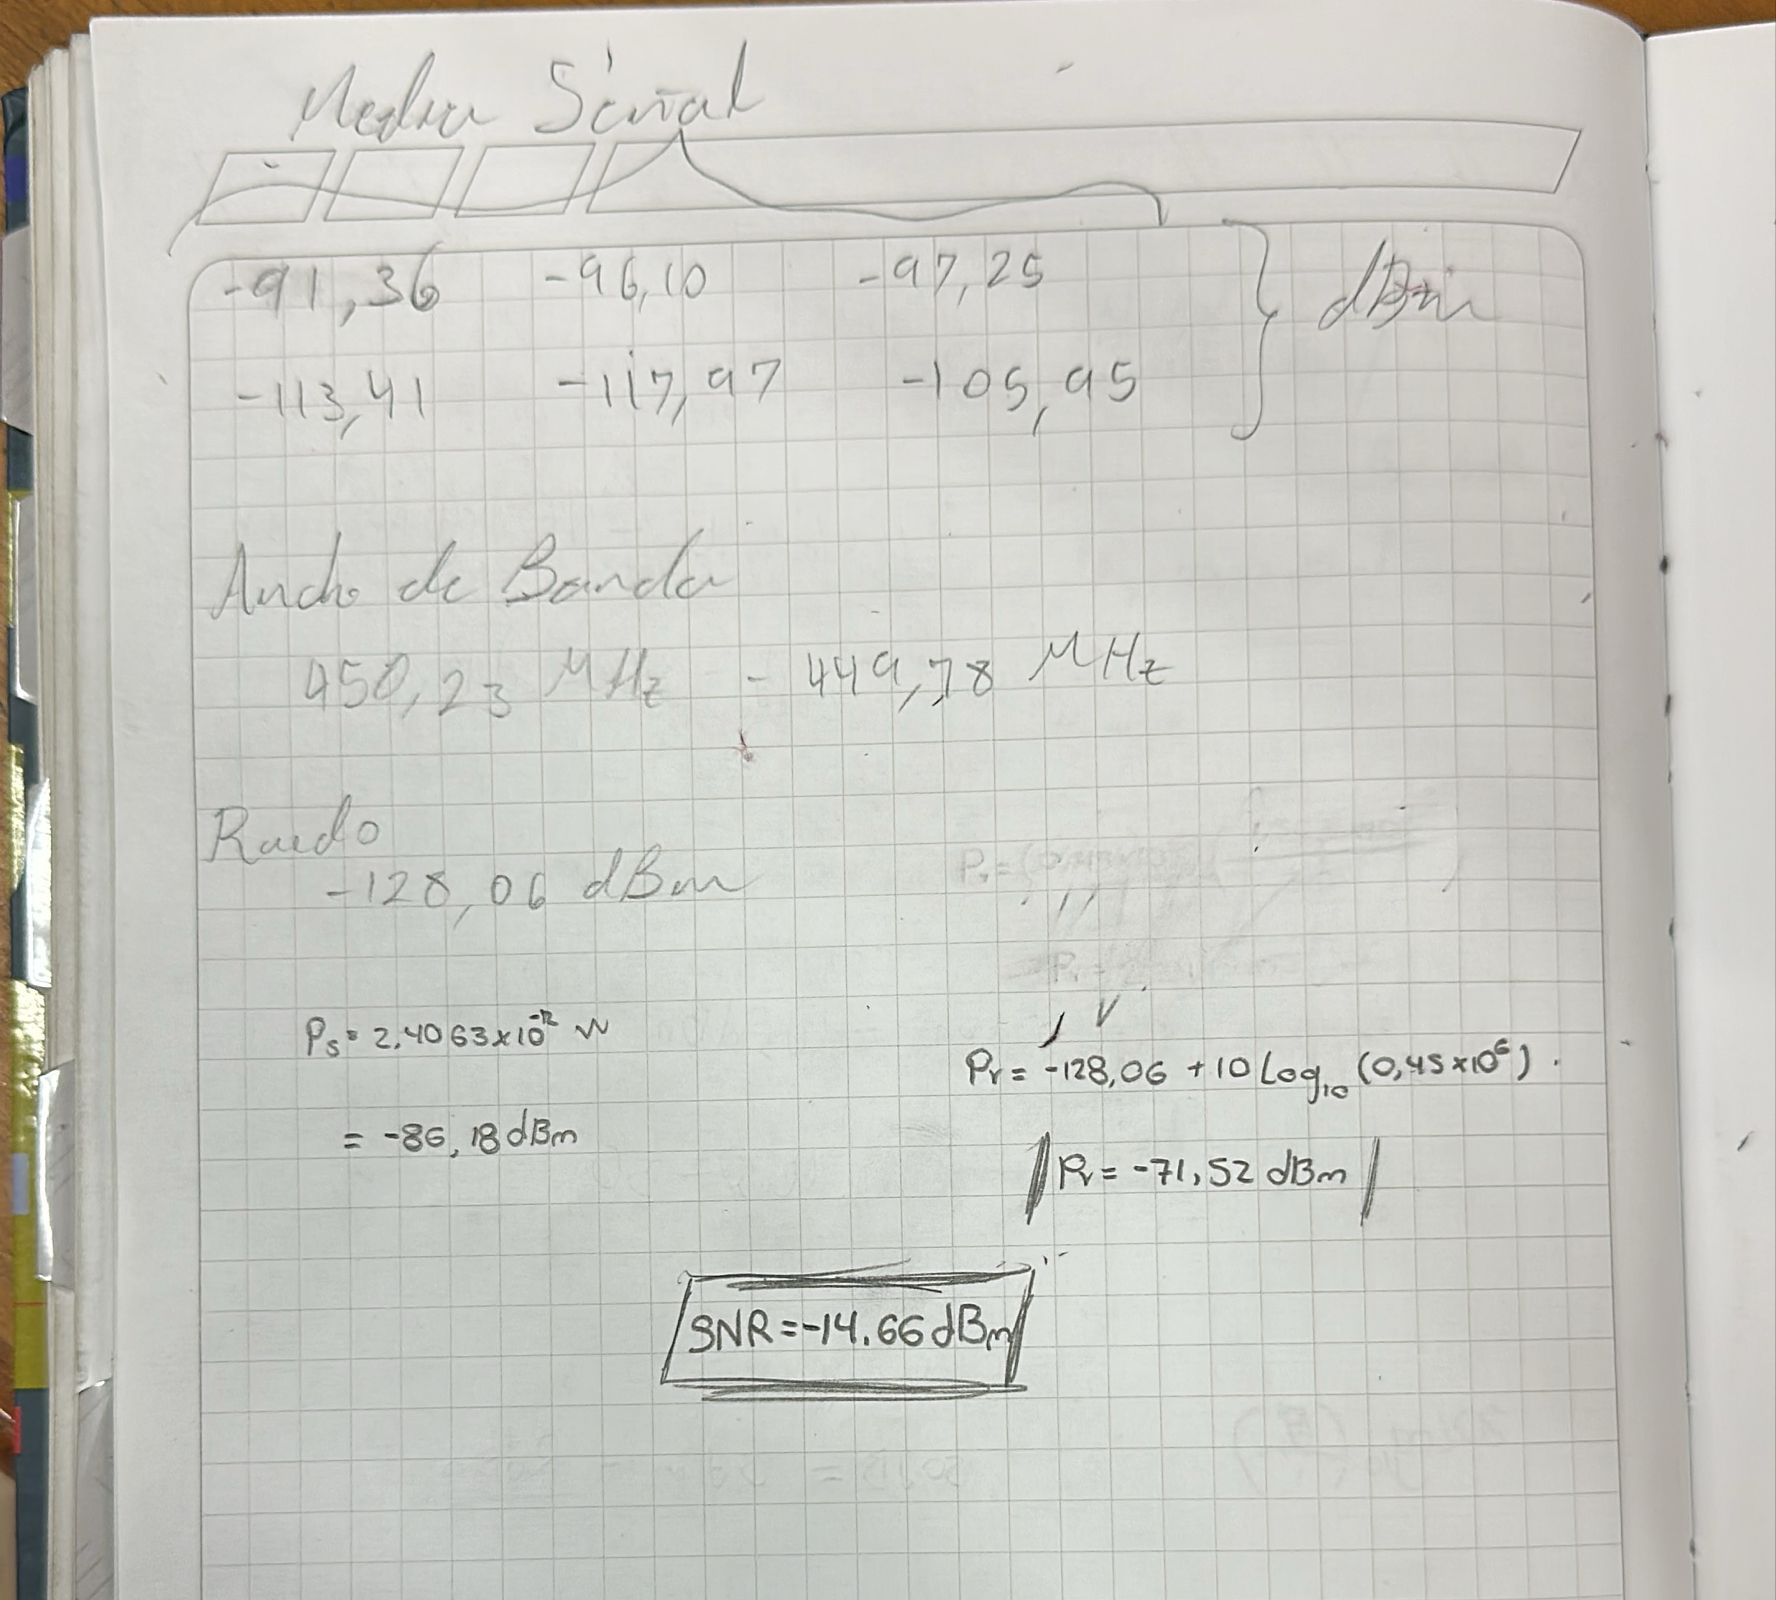 Media Señal
-91,36 -96,10 -97,25 dBm
-113,41 -117,97 -105,95
Ancho de Banda
450,23 MHz - 449,78 MHz
Ruido
-128,06 dBm
Ps = 2.4063x10⁻¹² W
Pr = -128,06 + 10 Log₁₀ (0,45x10⁶).
= -86,18 dBm
Pr = -71,52 dBm
SNR = -14.66 dBm